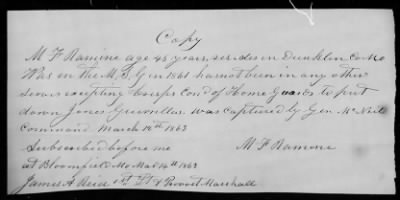 Copy
M F Ramine age 45 years, resides in Dunklin Co Mo
Was in the M. S. G in 1861 has not been in any other
service excepting Corps Com'd of Home Guards to put
down Jones Guerrillas was captured by Gen McNeil
Command March 10th 1863
Subscribed before me M F Ramine
at Bloomfield Mo Mch 14th 1863
James A Reid 1st Lt & Provost Marshall